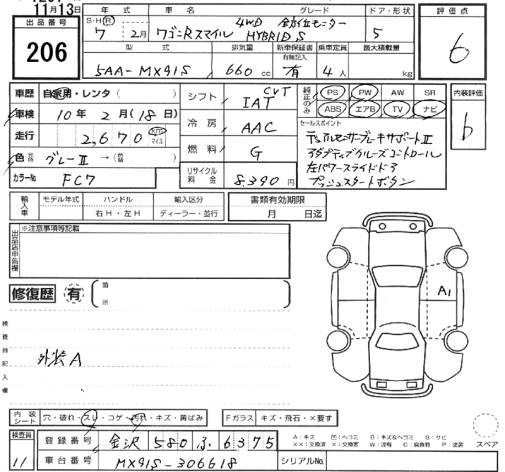 11月13日
出品番号
206
年式 車名 グレード ドア・形状
S・H・R 7年 2月 ワゴンRスマイル 4WD 全方位モニター HYBRID S 5
型式 排気量 新車保証書 有無記入 乗車定員 最大積載量
5AA-MX91S 660cc 有 4人 kg
評価点
6
内装評価
b
車歴 自家用・レンタ( )
車検 10年 2月(18日)
走行 2,670 km マイル
色 グレーⅡ →( )
カラーNo FC7
シフト CVT IAT
冷房 AAC
燃料 G
リサイクル料金 8,390円
純正のみ PS PW AW SR
ABS エアB TV ナビ
セールスポイント
デュアルセンサーブレーキサポートⅡ
アダプティブクルーズコントロール
左パワースライドドア
プッシュスタートボタン
輸入車 モデル年式 ハンドル 輸入区分 書類有効期限
右H・左H ディーラー・並行 月 日迄
出品店申告欄 ※注意事項等記載
修復歴 有 箇所
検査員記入欄
外装A
A1
内装シート 穴・破れ・スレ・コゲ・汚れ・キズ・黄ばみ Fガラス キズ・飛石・×要す
検査員
11
登録番号 金沢 580 ふ 6375
車台番号 MX91S-306618 シリアルNo.
A:キズ 凹:ヘコミ B:キズ&ヘコミ S:サビ
××:交換済 ×:交換要 W:波有 C:腐食有 P:塗装
スペア